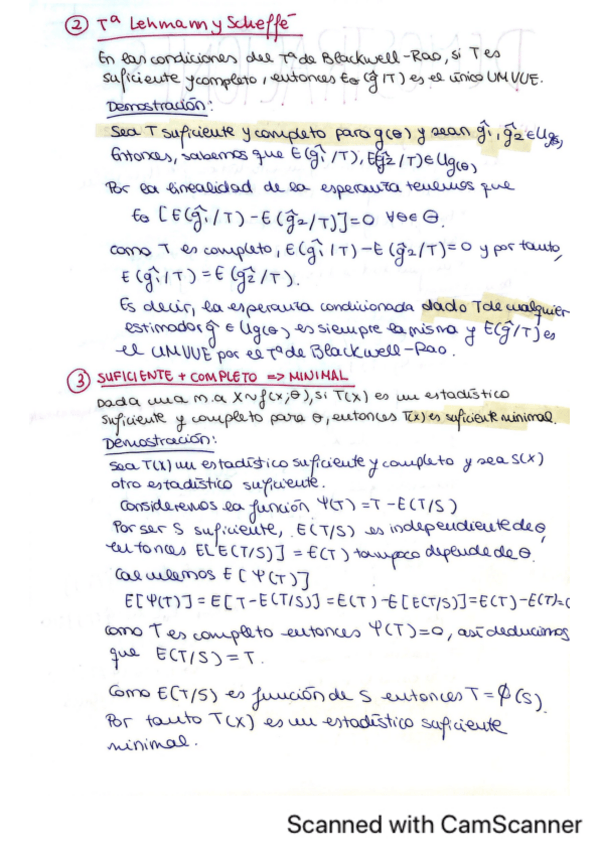 ② Tª Lehmann y Scheffé
En las condiciones del Tª de Blackwell-Rao, si T es
suficiente y completo, entonces Eθ(ĝ/T) es el único UMVUE.
Demostración:
Sea T suficiente y completo para g(θ) y sean ĝ1, ĝ2 ∈ Ug(θ),
Entonces, sabemos que E(ĝ1/T), E(ĝ2/T) ∈ Ug(θ)
Por la linealidad de la esperanza tenemos que
Eθ[E(ĝ1/T) - E(ĝ2/T)] = 0 ∀θ∈Θ.
como T es completo, E(ĝ1/T) - E(ĝ2/T) = 0 y por tanto,
E(ĝ1/T) = E(ĝ2/T).
Es decir, la esperanza condicionada dado T de cualquier
estimador ĝ ∈ Ug(θ) es siempre la misma y E(ĝ/T) es
el UMVUE por el Tª de Blackwell-Rao.
③ SUFICIENTE + COMPLETO => MINIMAL
Dada una m.a X~f(x;θ), si T(X) es un estadístico
suficiente y completo para θ, entonces T(X) es suficiente minimal.
Demostración:
Sea T(X) un estadístico suficiente y completo y sea S(X)
otro estadístico suficiente.
Consideremos la función Ψ(T) = T - E(T/S)
Por ser S suficiente, E(T/S) es independiente de θ,
entonces E[E(T/S)] = E(T) tampoco depende de θ.
Calculemos E[Ψ(T)]
E[Ψ(T)] = E[T - E(T/S)] = E(T) - E[E(T/S)] = E(T) - E(T) = 0
como T es completo entonces Ψ(T) = 0, así deducimos
que E(T/S) = T.
Como E(T/S) es función de S entonces T = ϕ(S).
Por tanto T(X) es un estadístico suficiente
minimal.
Scanned with CamScanner